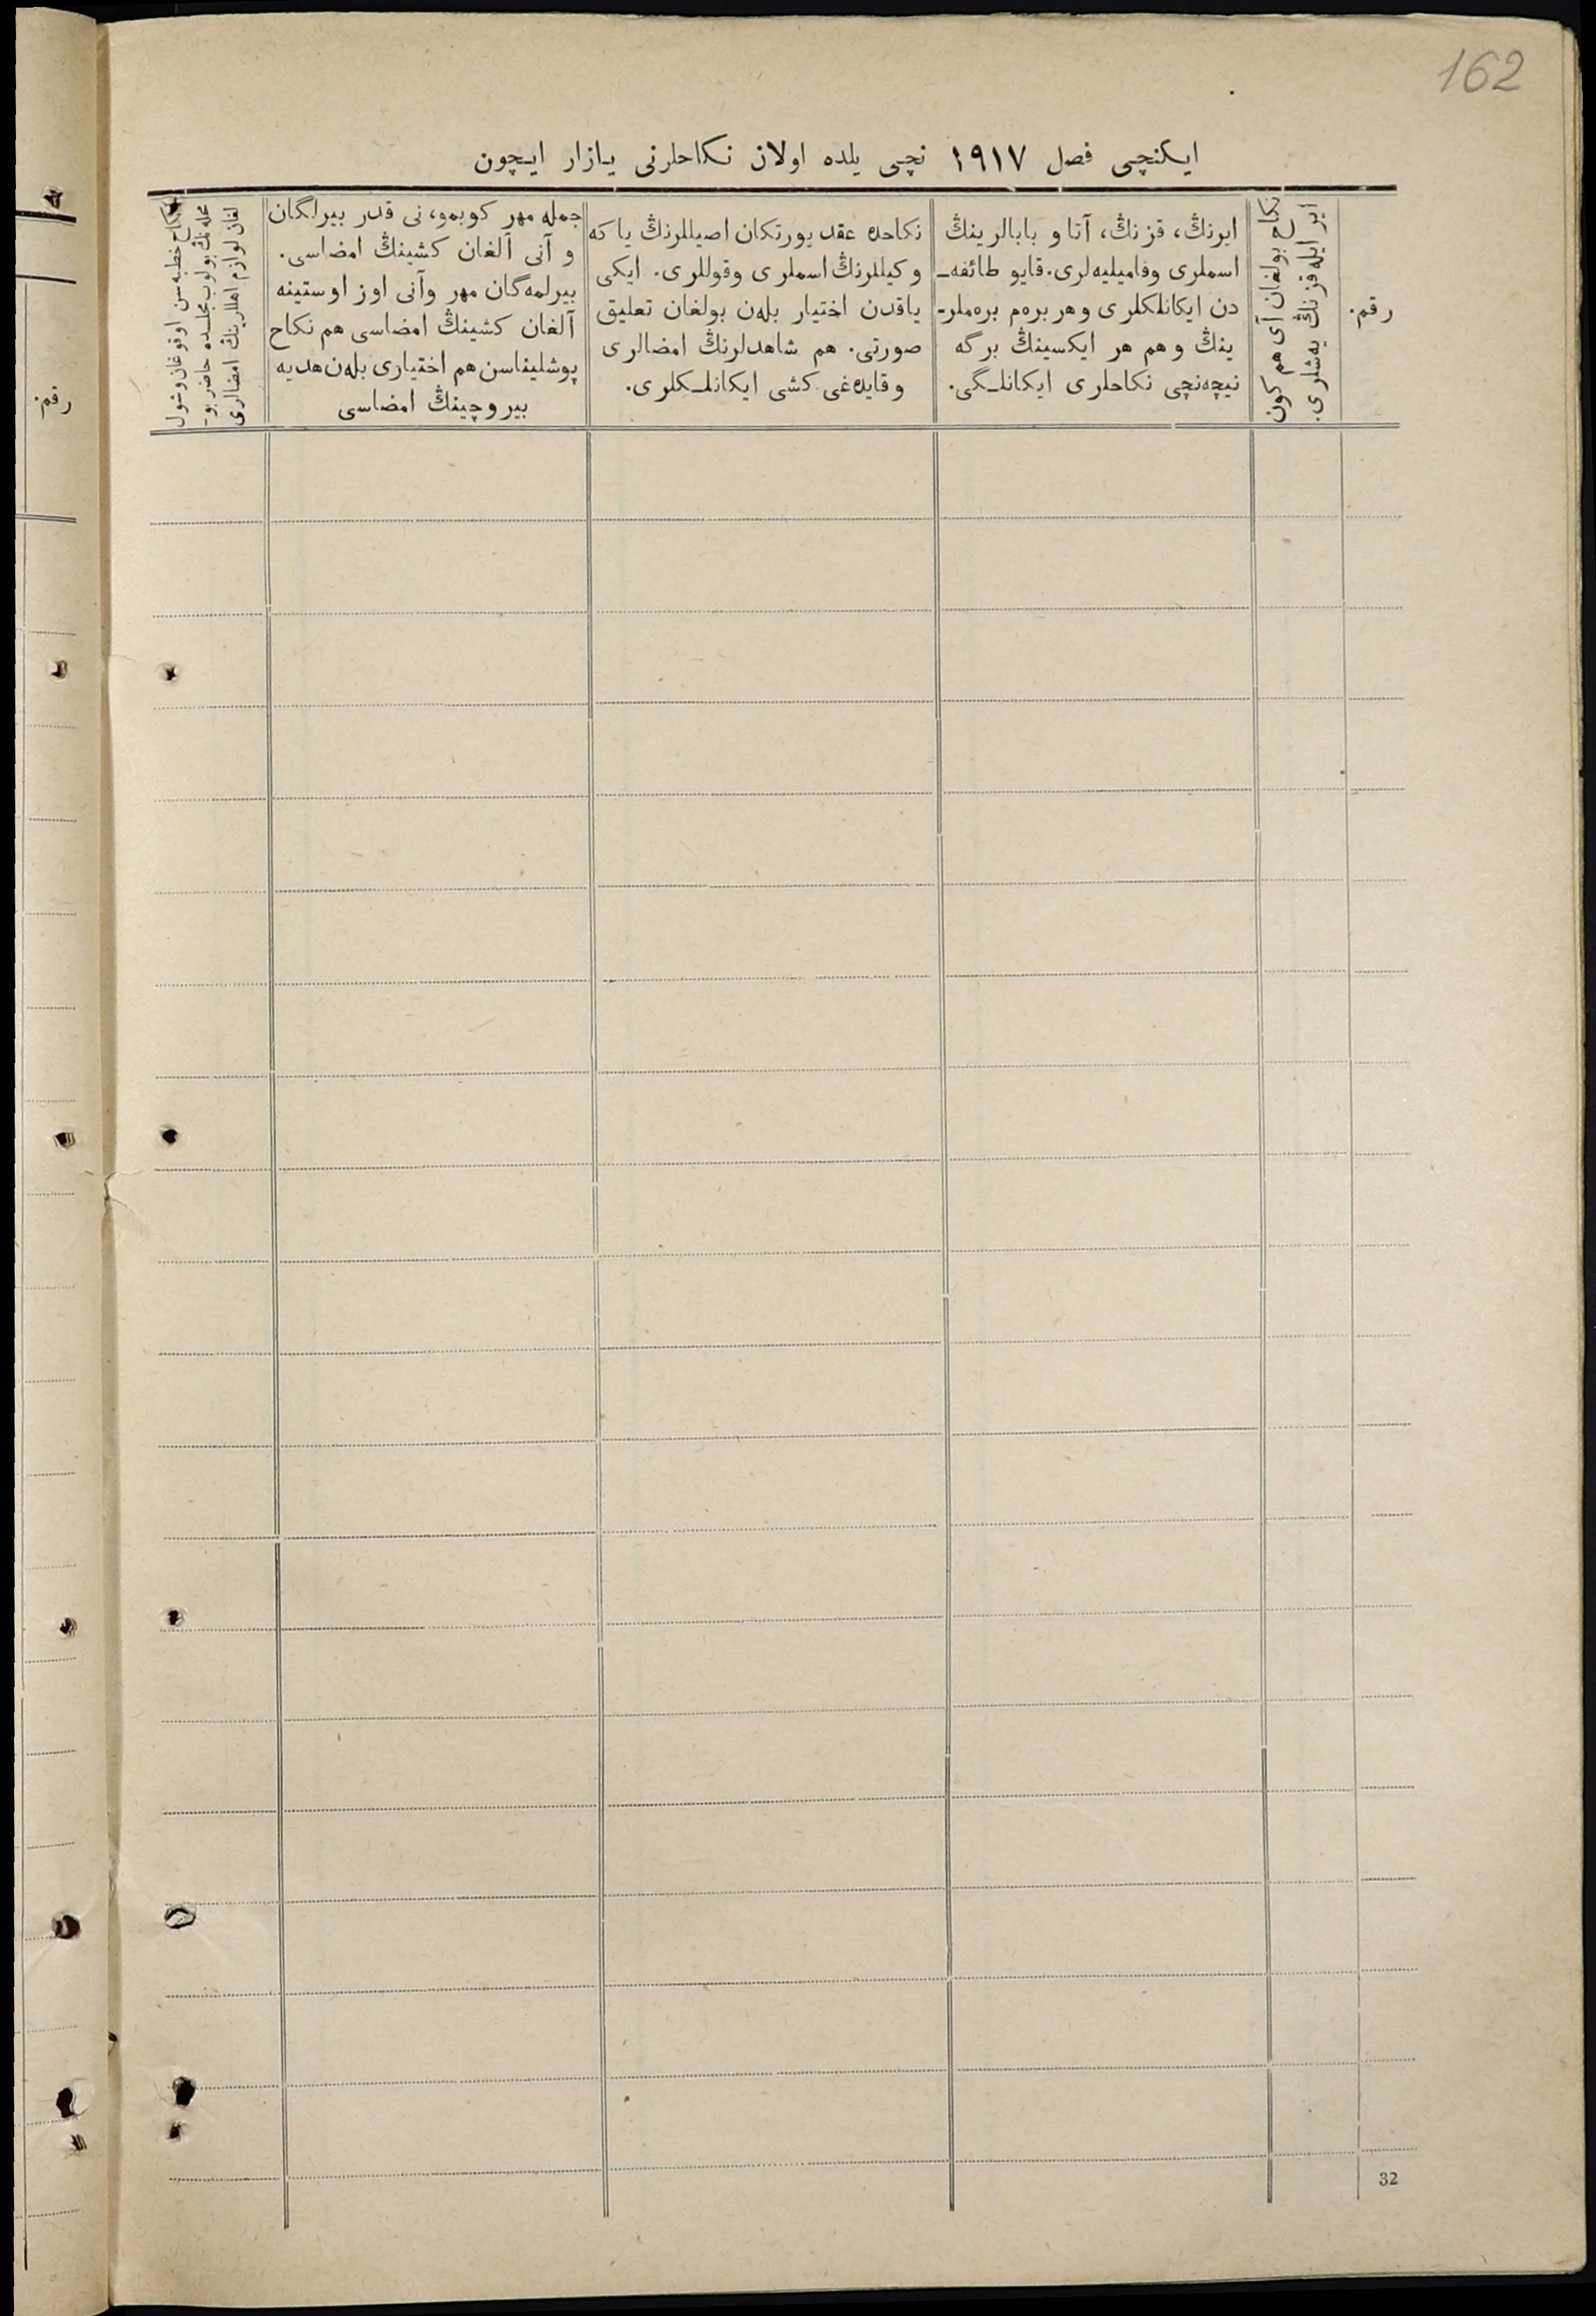 162
ایكنچی فصل ١٩١٧ نچی یلده اولان نكاحلرنی یازار ایچون
رقم.
نكاح بولغان آی هم كون
ایر ایله قزنڭ یه‌شلری.
ایرنڭ، قزنڭ، آتا و بابالرینڭ
اسملری وفامیلیه‌لری. قایو طائفه‌ـ
دن ایكانلكلری وهر بره‌م بره‌ملرـ
ینڭ وهم هر ایكسینڭ برگه
نیچه‌نچی نكاحلری ایكانلـگی.
نكاحده عقد یورتكان اصیللرنڭ یا كه
وكیللرنڭ اسملری وقوللری. ایكی
یاقدن اختیار بله‌ن بولغان تعلیق
صورتی. هم شاهدلرنڭ امضالری
وقایده‌غی كشی ایكانلـكلری.
جمله مهر كوبمو، نی قدر بیرلگان
و آنی آلغان كشینڭ امضاسی.
بیرلمه‌گان مهر وآنی اوز اوستینه
آلغان كشینڭ امضاسی هم نكاح
پوشلیناسن هم اختیاری بله‌ن هدیه
بیروچینڭ امضاسی
نكاح خطبه‌سن اوقوغان وشول
محله‌نڭ بولوب مجلسده حاضر بوـ
لغان لوازم اهللرینڭ امضالری
رقم.
32